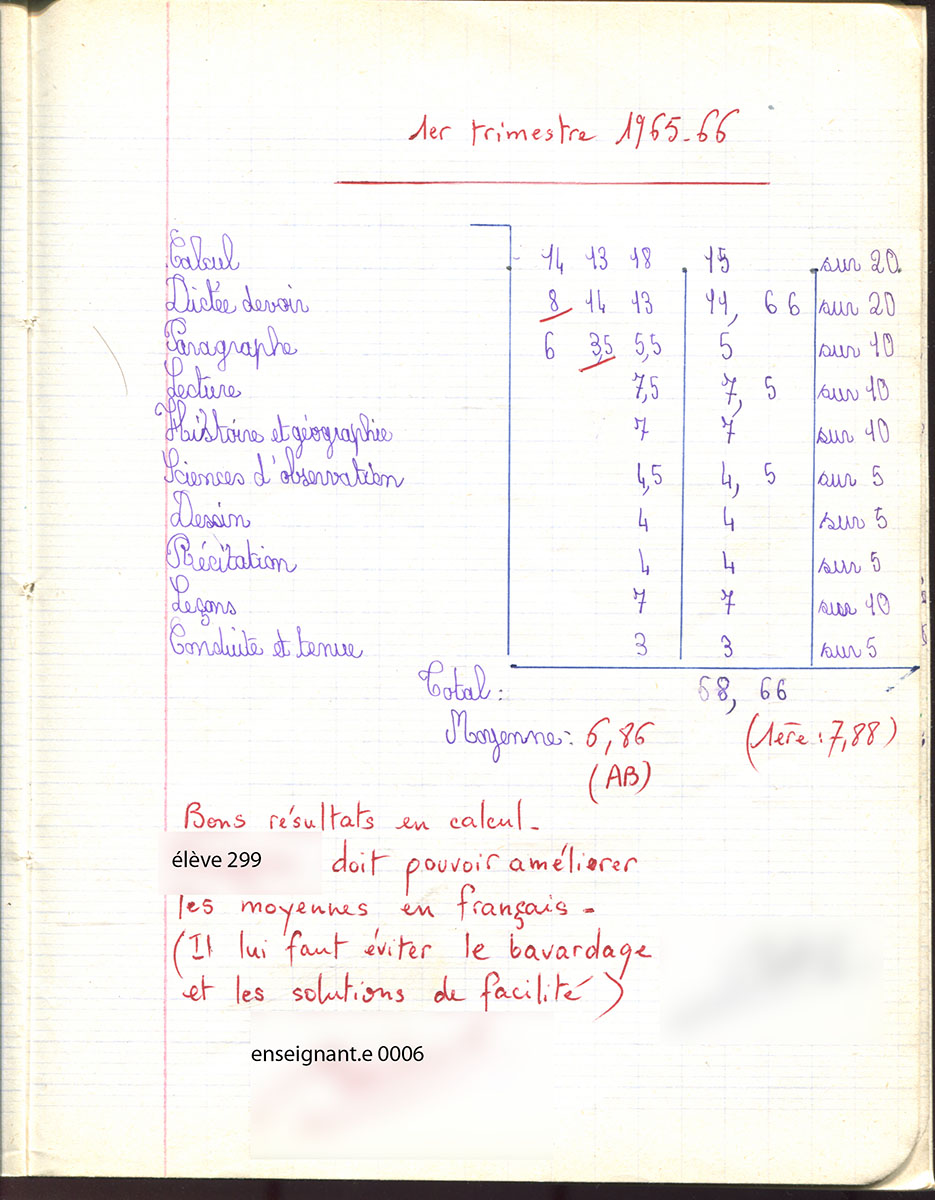 1er trimestre 1965-66
Calcul 14 13 18 15 sur 20.
Dictée devoir 8 14 13 11, 66 sur 20
Paragraphe 6 3,5 5,5 5 sur 10
Lecture 7,5 7, 5 sur 10
Histoire et géographie 7 7 sur 10
Sciences d'observation 4,5 4, 5 sur 5
Dessin 4 4 sur 5
Récitation 4 4 sur 5
Leçons 7 7 sur 10
Conduite et tenue 3 3 sur 5
Total : 68, 66
Moyenne : 6,86 (1ère : 7,88)
(AB)
Bons résultats en calcul -
élève 299 doit pouvoir améliorer
les moyennes en français -
(Il lui faut éviter le bavardage
et les solutions de facilité)
enseignant.e 0006